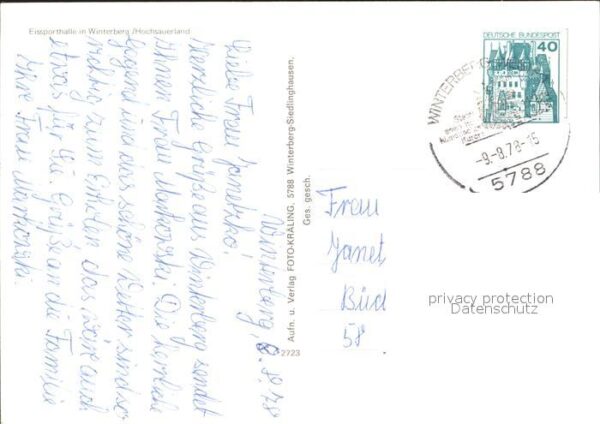 Eissporthalle in Winterberg /Hochsauerland
Winterberg, 8.8.78
Liebe Frau Janetzko!
Herzliche Grüße aus Winterberg sendet
Ihnen Frau Markowski. Die herrliche
Gegend und das schöne Wetter sind so
richtig zum Erholen das wäre auch
etwas für Sie. Grüße an die Familie
Ihre Frau Markowski.
Aufn. u. Verlag FOTO-KRÄLING, 5788 Winterberg-Siedlinghausen,
Ges. gesch.
2723
DEUTSCHE BUNDESPOST
40
WINTERBERG
-9.-8.78-15
5788
Frau
Janet
Büd
58
privacy protection
Datenschutz